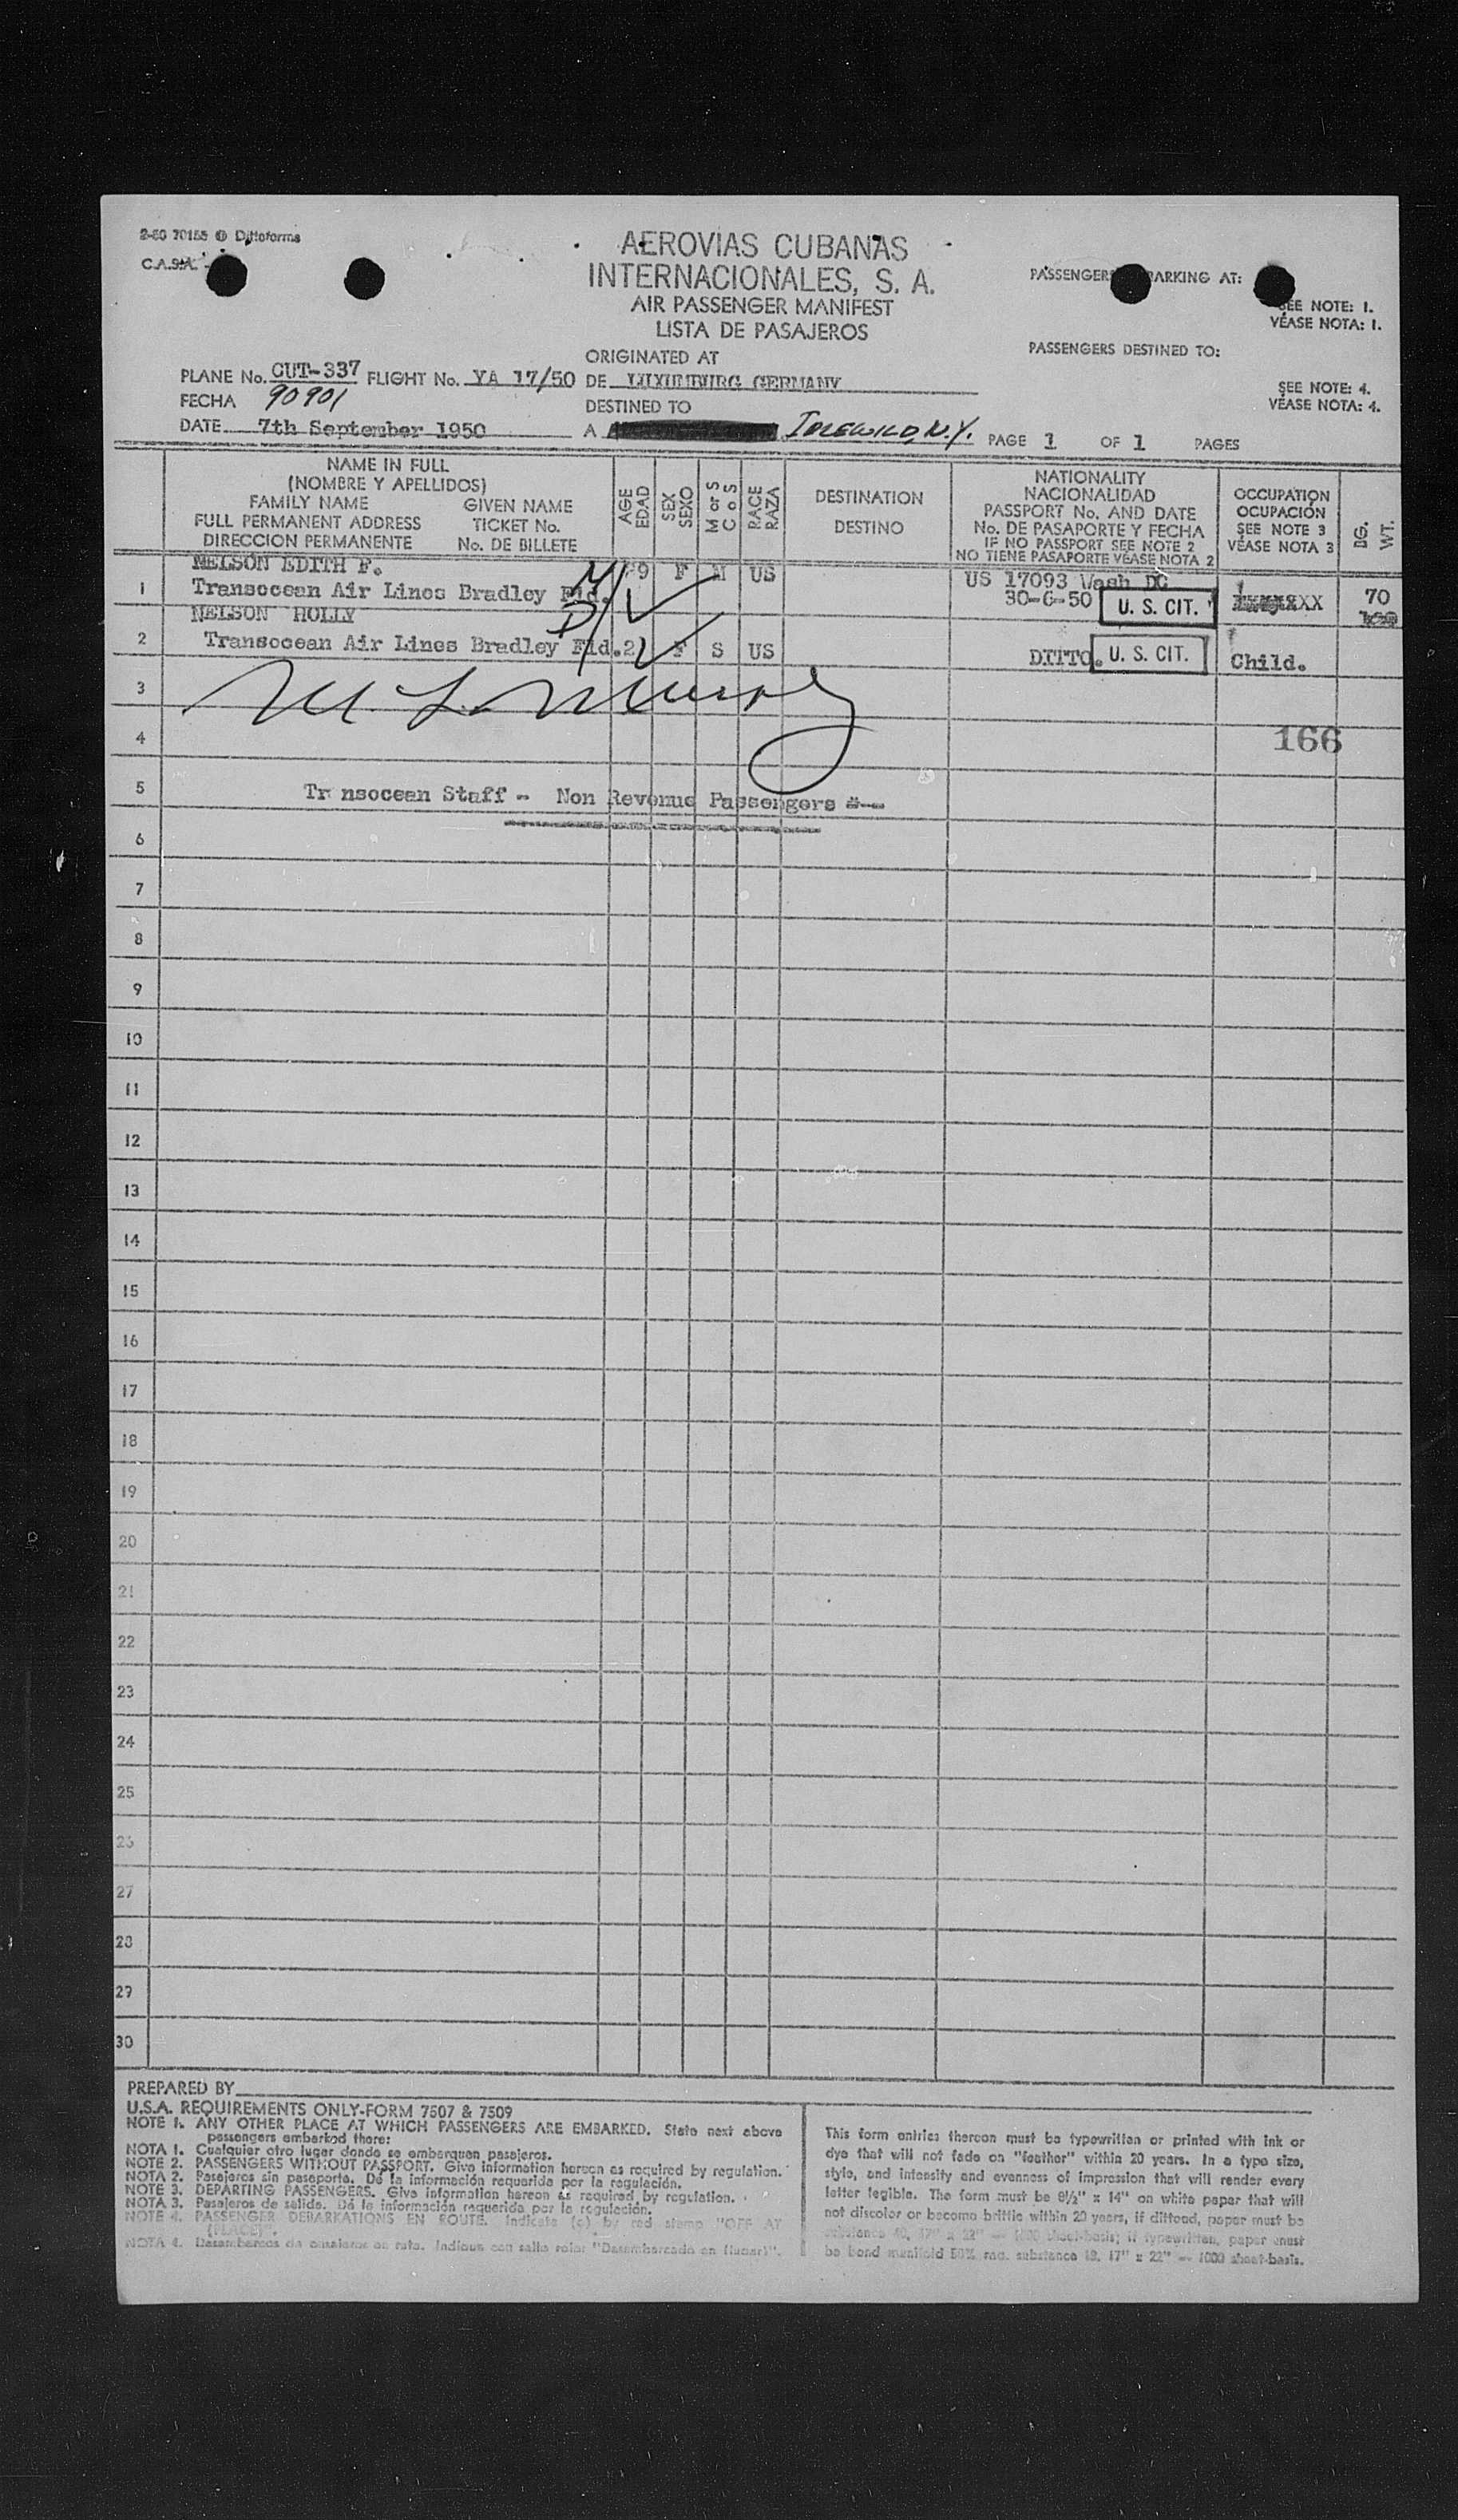 2-50 70155 @ Dittoforms
C.A.S.A.
AEROVIAS CUBANAS
INTERNACIONALES, S. A.
AIR PASSENGER MANIFEST
LISTA DE PASAJEROS
PASSENGERS ARKING AT:
SEE NOTE: 1.
VÉASE NOTA: 1.
PASSENGERS DESTINED TO:
SEE NOTE: 4.
VÉASE NOTA: 4.
PLANE No. CUT-337 FLIGHT No. YA 17/50
ORIGINATED AT
DE LUXUMBURG GERMANY
FECHA 90901
DATE 7th September 1950
DESTINED TO
A IDLEWILD, N.Y. PAGE 1 OF 1 PAGES
NAME IN FULL
(NOMBRE Y APELLIDOS)
FAMILY NAME GIVEN NAME
FULL PERMANENT ADDRESS TICKET No.
DIRECCION PERMANENTE No. DE BILLETE
AGE EDAD
SEX SEXO
M or S C o S
RACE RAZA
DESTINATION
DESTINO
NATIONALITY
NACIONALIDAD
PASSPORT No. AND DATE
No. DE PASAPORTE Y FECHA
IF NO PASSPORT SEE NOTE 2
NO TIENE PASAPORTE VÉASE NOTA 2
OCCUPATION
OCUPACIÓN
SEE NOTE 3
VÉASE NOTA 3
BG. WT.
NELSON EDITH F. 9 F M US US 17093 Wash DC
1 Transocean Air Lines Bradley Fld. 30-6-50 U. S. CIT. 70
NELSON HOLLY
2 Transocean Air Lines Bradley Fld. 2 F S US DITTO. U. S. CIT. Child.
3 M. L. Murphy
4 166
5 Tr nsocean Staff - Non Revenue Passengers
6
7
8
9
10
11
12
13
14
15
16
17
18
19
20
21
22
23
24
25
26
27
28
29
30
PREPARED BY
U.S.A. REQUIREMENTS ONLY-FORM 7507 & 7509
NOTE 1. ANY OTHER PLACE AT WHICH PASSENGERS ARE EMBARKED. State next above
passengers embarked there:
NOTA 1. Cualquier otro lugar donde se embarquen pasajeros.
NOTE 2. PASSENGERS WITHOUT PASSPORT. Give information hereon as required by regulation.
NOTA 2. Pasajeros sin pasaporte. Dé la información requerida por la regulación.
NOTE 3. DEPARTING PASSENGERS. Give information hereon as required by regulation.
NOTA 3. Pasajeros de salida. Dé la información requerida por la regulación.
NOTE 4. PASSENGER DEBARKATIONS EN ROUTE. Indicate (c) by red stamp "OFF AT
(PLACE)".
NOTA 4. Desembarcos de pasajeros en ruta. Indique con sello rojo: "Desembarcado en (lugar)".
This form entries thereon must be typewritten or printed with ink or
dye that will not fade on "feather" within 20 years. In a type size,
style, and intensity and evenness of impression that will render every
letter legible. The form must be 8½" x 14" on white paper that will
not discolor or become brittle within 20 years, if dittoed, paper must be
substance 40, 17" x 22" — 1000 sheet-basis; if typewritten, paper must
be bond manifold 50% rag. substance 18, 17" x 22" — 1000 sheet-basis.